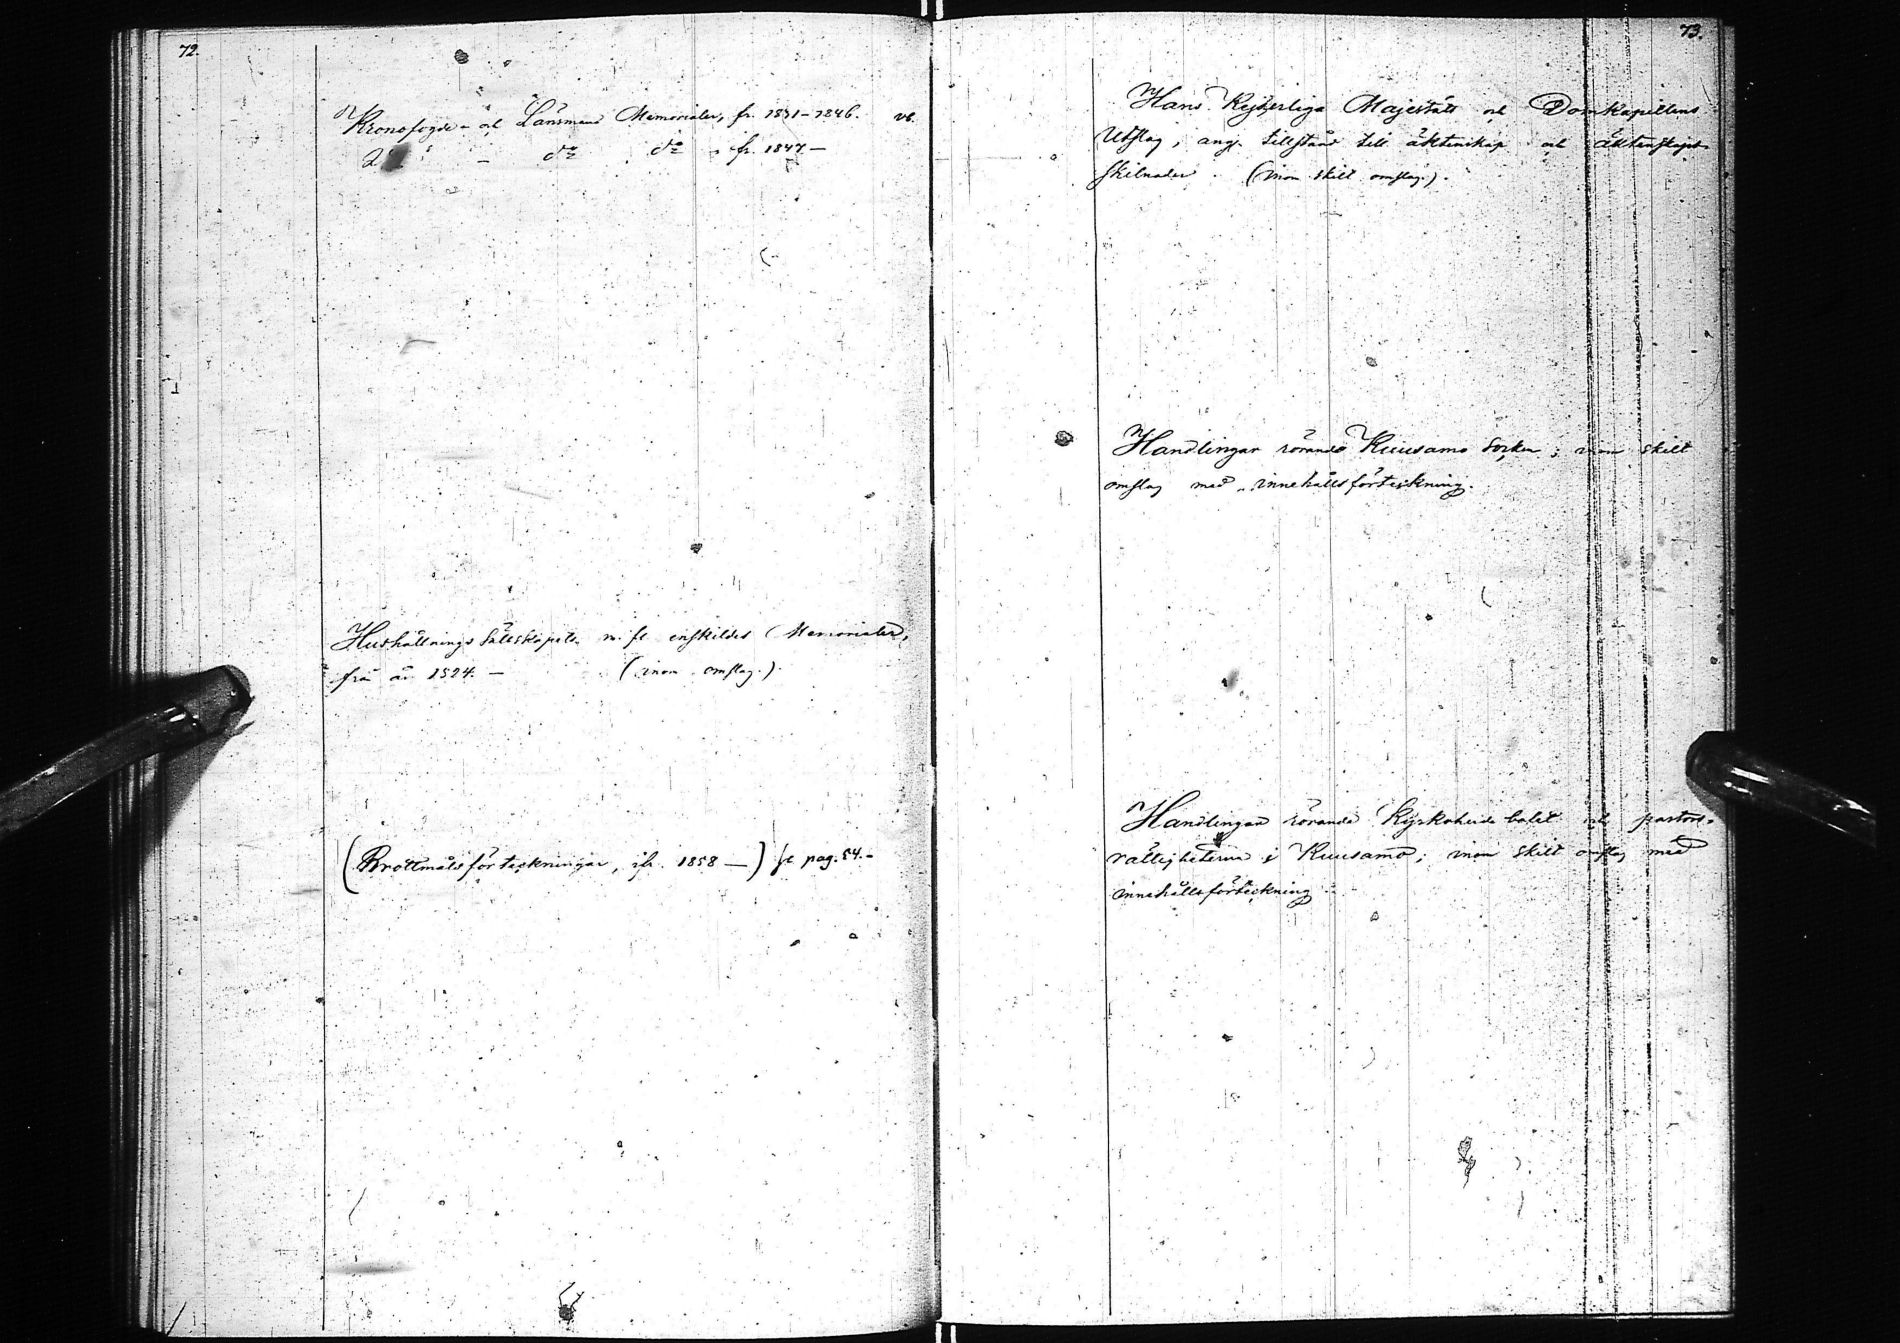 72.
Kronofogde- och Länsmans Memorialer, fr. 1831-1846. vb.
do - do do fr. 1847-
Hushållnings Sällskapets m. fl. enskildes Memorialer,
från år 1824. - (inom omslag.).
(Brottmålsförteckningar, ifr. 1858 -) se pag. 54.-
73.
Hans Kejserliga Majestäts och Domkapitlens
Utslag, ang. tillstånd till äktenskap och äktenskaps-
skilnader. (inom skilt omslag.).
Handlingar rörande Kuusamo Socken; inom skilt
omslag med innehållsförteckning.
Handlingar rörande Kyrkoherde bolet och pastors-
rättigheterna i Kuusamo; inom skilt omslag med
innehållsförteckning